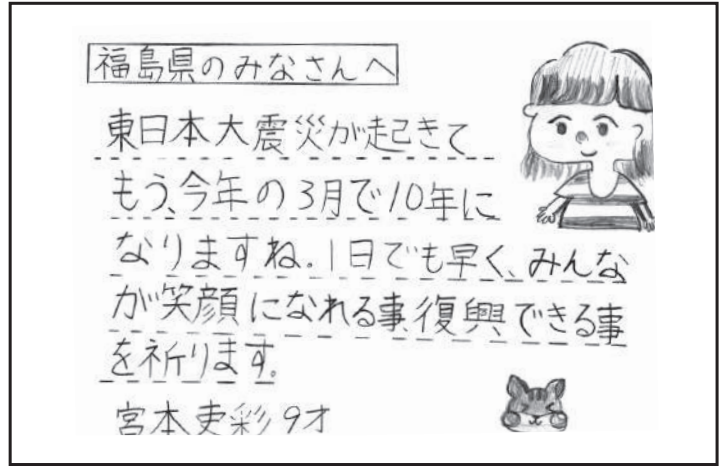 福島県のみなさんへ
東日本大震災が起きて
もう、今年の3月で10年に
なりますね。1日でも早く、みんな
が笑顔になれる事、復興できる事
を祈ります。
宮本吏彩 9才